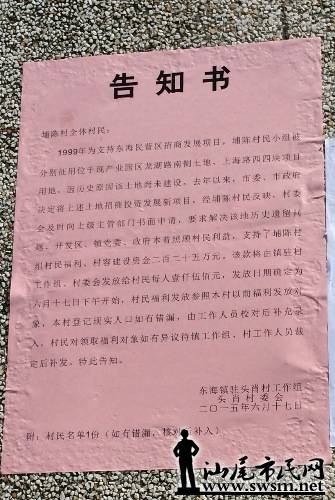 告知书
埔陈村全体村民：
1999年为支持东海民营区招商发展项目，埔陈村民小组被
分别征用位于现产业园区龙湖路南侧土地、上海路西四块项目
用地。因历史原因该土地尚未建设。去年以来，市委、市政府
决定将上述土地招商投资发展新项目，经埔陈村民反映，村委
会及时向上级主管部门书面申请，要求解决该地历史遗留问
题，开发区、镇党委、政府本着照顾村民利益，支持了埔陈村
组村民福利、村容建设资金二百二十五万元。该款将由镇驻村
工作组、村委会发放给村民每人壹仟伍佰元，发放日期确定为
六月十七日下午开始，村民福利发放参照本村以前福利发放对
象，本村登记现实人口如有错漏，由工作人员校对后补充录
入，村民对领取福利对象如有异议待镇工作组、村工作人员裁
定后补发。特此告知。
东海镇驻头肖村工作组
头肖村委会
二〇一五年六月十七日
附：村民名单1份（如有错漏，核对补入）
汕尾市民网
www.swsm.net